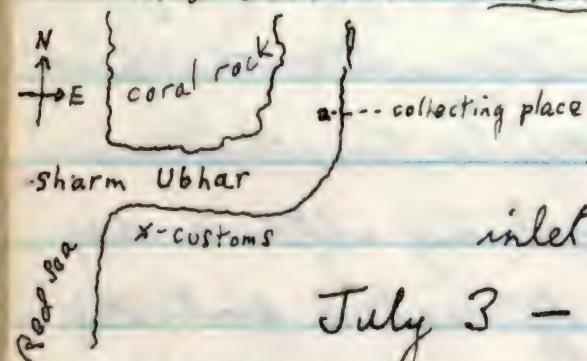 N
E
coral rock
a--- collecting place
Sharm Ubhar
x-customs
inlet
Red Sea
July 3 -